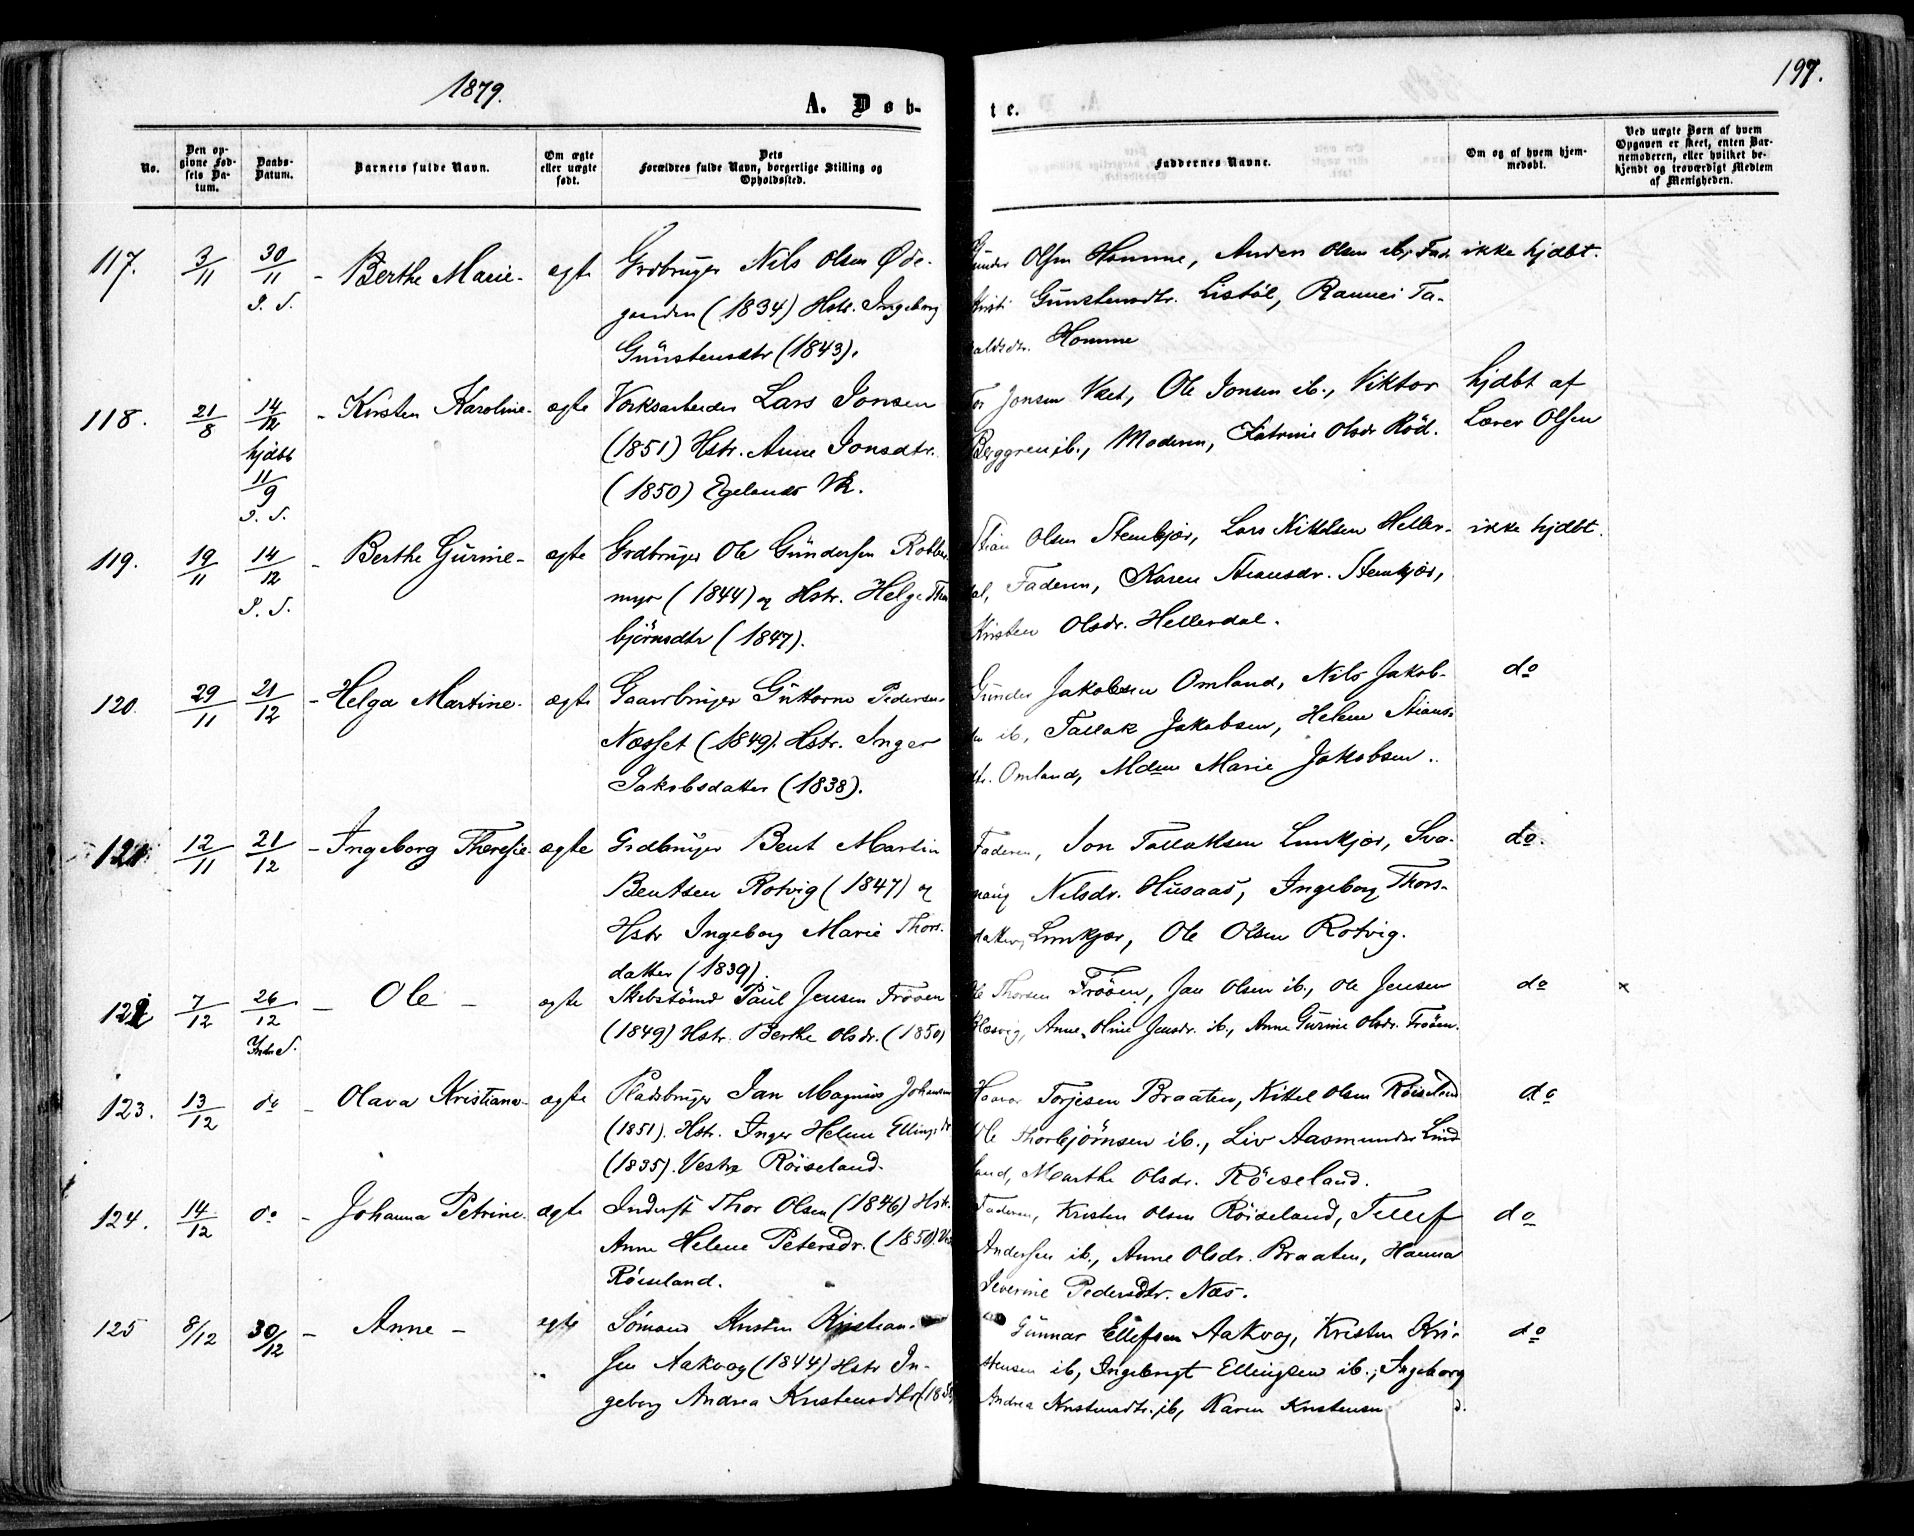 1879.
197.
A. Døb-
te.
No.
Den op-
givne Fød-
sels Da-
tum.
Daabs-
Datum.
Barnets fulde Navn.
Om ægte
eller uægte
født.
Dets
Forældres fulde Navn, borgerlige Stilling og
Opholdssted.
Faddernes Navne.
Om og af hvem hjem-
medøbt.
Ved uægte Børn af hvem
Opgaven er skeet, enten Bar-
nemoderen, eller hvilket be-
kjendt og troværdigt Medlem
af Menigheden.
117. 3/11 30/11 - Berthe Marie - ægte Grdbruger Nils Olsen Øde-
gaarden (1834) Hstr. Ingeborg
Gunstensdtr (1843).
Gunder Olsen Homme, Anders Olsen ib., Fad. ikke hjdbt.
Kristi Gunstensdtr. Listøl, Rannei Ta-
raldsdtr. Homme
118. 21/8 14/12 - Kirsten Karoline - ægte Værksarbeider Lars Jonsen
hjdbt
11/9
(1851) Hstr. Anne Jonsdtr.
(1850) Egelands Vk.
Tor Jonsen Vaet, Ole Jonsen ib., Viktor hjdbt af
Berggren ib., Moderen, Katrine Olsdr Rød. Lærer Olsen
119. 19/11 14/12 - Berthe Gurine - ægte Grdbruger Ole Gundersen Robber-
myr (1844) og Hstr. Helge Thor
bjørnsdtr (1847).
Stian Olsen Stenkjær, Lars Kittelsen Heller- ikke hjdbt.
dal, Faderen, Karen Stiansdr. Stenkjær,
Kristen Olsdr. Hellerdal.
120. 29/11 21/12 - Helga Martine - ægte Gaardbruger Guttorm Pedersen
Næsset (1849). Hstr. Inger
Jakobsdatter (1838).
Gunder Jakobsen Omland, Nils Jakob- do
sen ib., Tallak Jakobsen, Helene Stians-
dtr. Omland, Mdm Marie Jakobsen.
121 12/11 21/12 - Ingeborg Theresie - ægte Grdbruger Bent Martin
Bentsen Rotvig (1847) og
Hstr Ingeborg Marie Thors-
datter (1839).
Faderen, Jon Tallaksen Lunkjær, Sva- do.
naug Nilsdr. Husaas, Ingeborg Thors-
datter, Lunkjær, Ole Olsen Rotvig.
122 7/12 26/12 - Ole - ægte Skibstømd Paul Jensen Frøøen
(1849) Hstr. Berthe Olsdr. (1850)
Ole Thorsen Frøøen, Jan Olsen ib., Ole Jensen do x
Blæsvig, Anne Oline Jensdr. ib., Anne Gurine Olsdr. Frøøen.
123. 13/12 do - Olava Kristiane - ægte Pladsbruger Jan Magnus Johansen
(1851). Hstr. Inger Helene Ellingsdr
(1835). Vestre Röiseland.
Haavor Torjesen Braaten, Kittel Olsen Röiseland do
Ole Thorbjørnsen ib., Liv Aasmundsdr Lind
land, Marthe Olsdr. Röiseland.
124. 14/12 do - Johanna Petrine - ægte Inderst Thor Olsen (1846) Hstr.
Anne Helene Petersdr. (1850). Ves
Röiseland.
Faderen, Kristen Olsen Röiseland, Tellef do
Andersen ib., Anne Olsdr. Braaten, Hanna
Severine Pedersdtr. Næs.
125 8/12 30/12 - Anne - ægte Sømand Kristen Kristian-
sen Aakvag (1844) Hstr In-
geborg Andrea Kristensdtr (185
Gunnar Ellefsen Aakvag, Kristen Kri- do
stensen ib., Ingebregt Ellingsen ib., Ingeborg
Andrea Kristensdtr. ib., Karen Kristensen d.